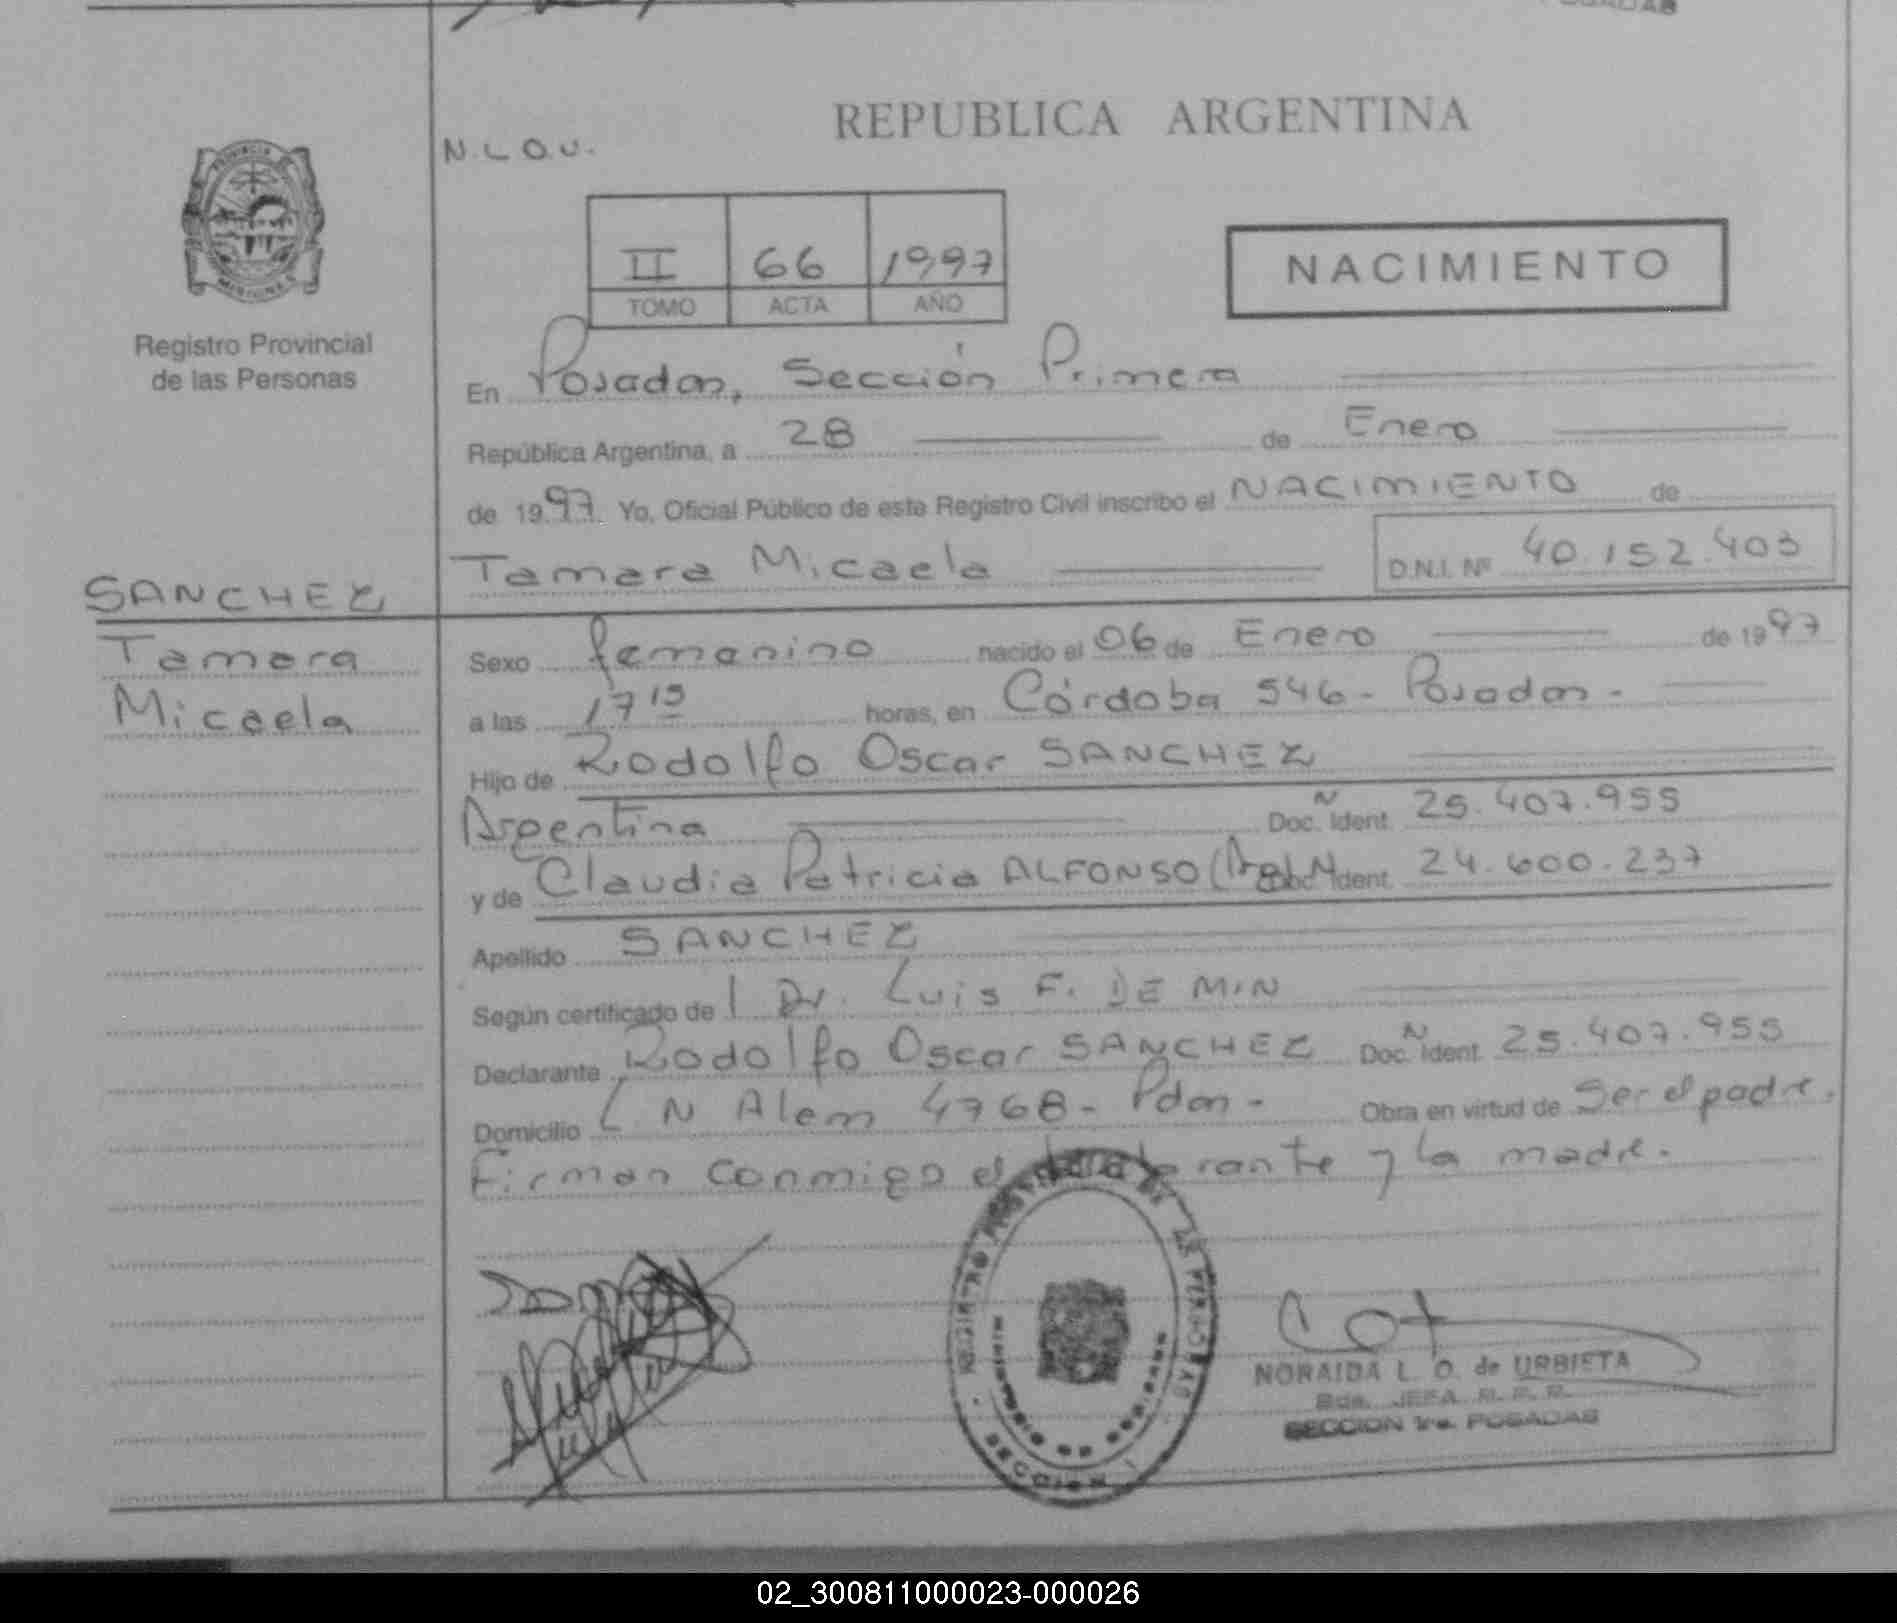 REPUBLICA ARGENTINA
N.L.O.U.
II 66 1997
TOMO ACTA AÑO
NACIMIENTO
Registro Provincial
de las Personas
En Posadas, Sección Primera
República Argentina, a 28 de Enero
de 1997. Yo, Oficial Público de este Registro Civil inscribo el NACIMIENTO de
Tamara Micaela D.N.I. Nº 40.152.403
SANCHEZ
Tamara
Micaela
Sexo femenino nacido el 06 de Enero de 1997
a las 17 15 horas, en Córdoba 546 - Posadas -
Hijo de Rodolfo Oscar SANCHEZ
Argentina Doc. N Ident. 25.407.955
y de Claudia Patricia ALFONSO (Arg) Doc. N Ident. 24.600.237
Apellido SANCHEZ
Según certificado de l Dr. Luis F. DE MIN
Declarante Rodolfo Oscar SANCHEZ Doc. N Ident. 25.407.955
Domicilio L N Alem 4768 - Pdas - Obra en virtud de Ser el padre.
Firman conmigo el declarante y la madre.
REGISTRO PROVINCIAL DE LAS PERSONAS
SECCION
NORAIDA L. O. de URBIETA
JEFA R. P. P.
SECCION 1ra. POSADAS
02_300811000023-000026